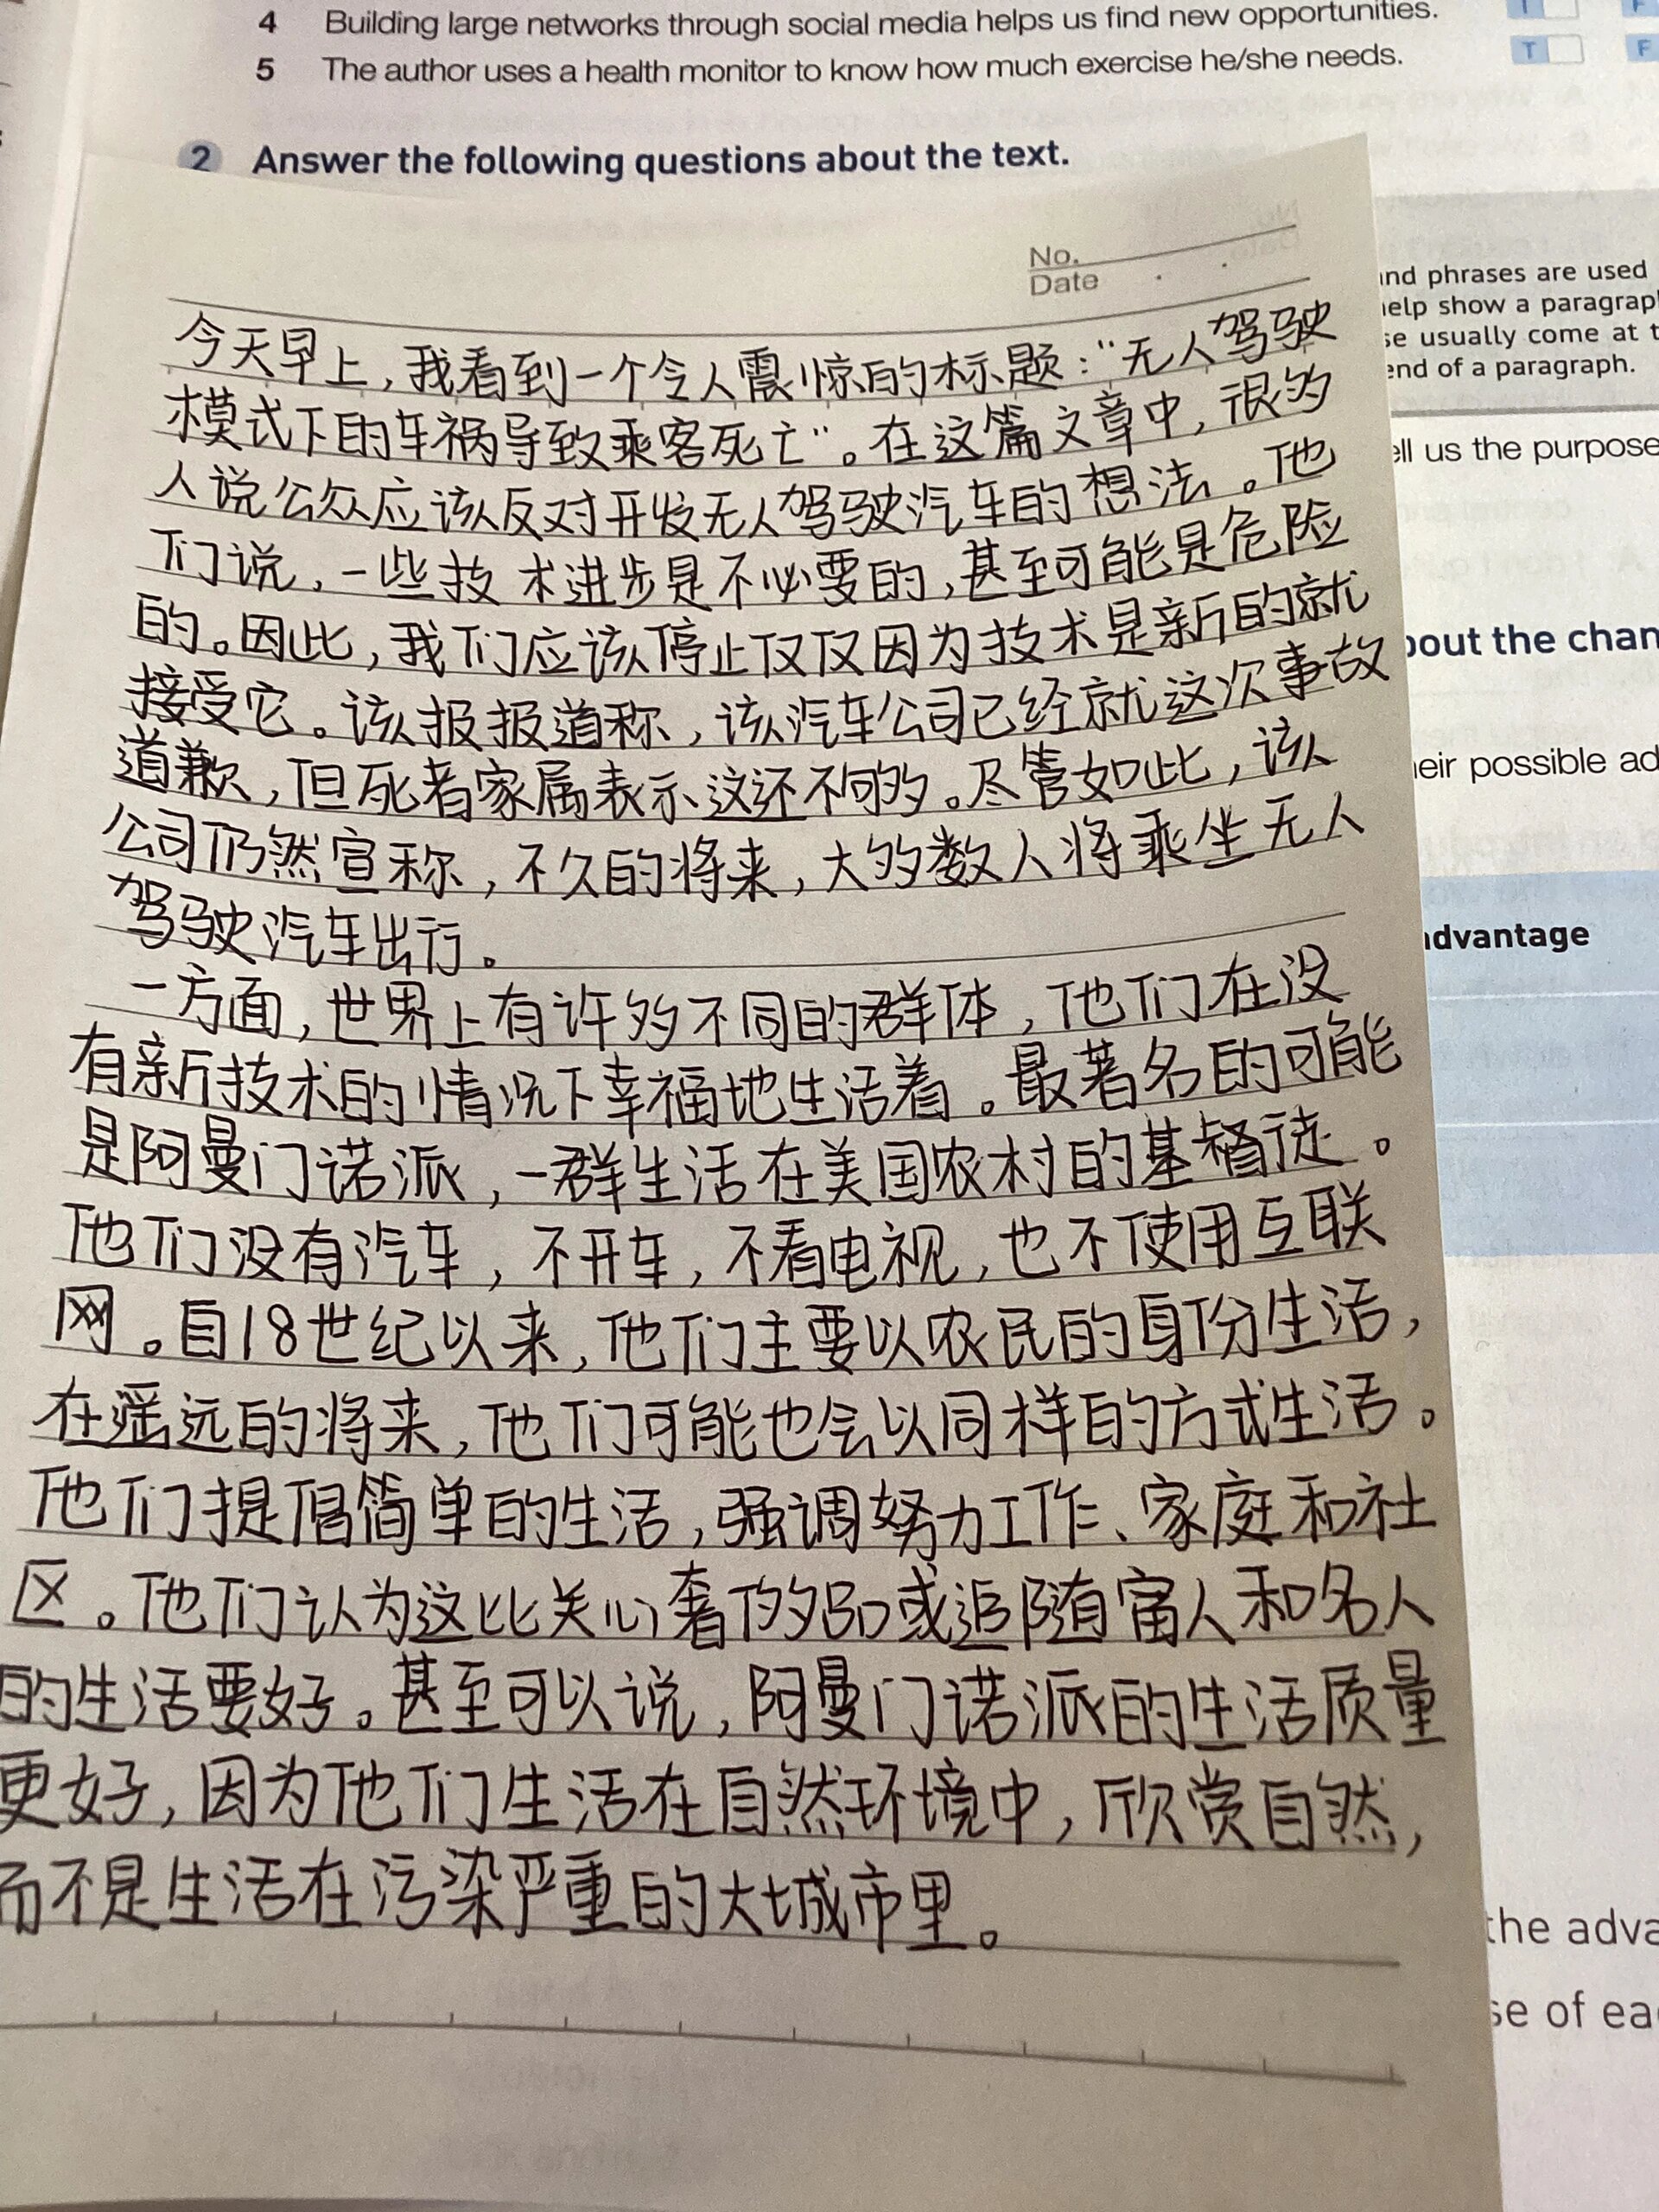 4 Building large networks through social media helps us find new opportunities.
5 The author uses a health monitor to know how much exercise he/she needs.
T
F
2 Answer the following questions about the text.
No.
Date
今天早上，我看到一个令人震惊的标题："无人驾驶
模式下的车祸导致乘客死亡"。在这篇文章中，很多
人说公众应该反对开发无人驾驶汽车的想法。他
们说，一些技术进步是不必要的，甚至可能是危险
的。因此，我们应该停止仅仅因为技术是新的就
接受它。该报报道称，该汽车公司已经就这次事故
道歉，但死者家属表示这还不够。尽管如此，该
公司仍然宣称，不久的将来，大多数人将乘坐无人
驾驶汽车出行。
一方面，世界上有许多不同的群体，他们在没
有新技术的情况下幸福地生活着。最著名的可能
是阿曼门诺派，一群生活在美国农村的基督徒。
他们没有汽车，不开车，不看电视，也不使用互联
网。自18世纪以来，他们主要以农民的身份生活，
在遥远的将来，他们可能也会以同样的方式生活。
他们提倡简单的生活，强调努力工作、家庭和社
区。他们认为这比关心奢侈品或追随富人和名人
的生活要好。甚至可以说，阿曼门诺派的生活质量
更好，因为他们生活在自然环境中，欣赏自然，
而不是生活在污染严重的大城市里。
and phrases are used
help show a paragraph
se usually come at t
end of a paragraph.
ell us the purpose
bout the chan
heir possible ad
advantage
the adva
se of ea